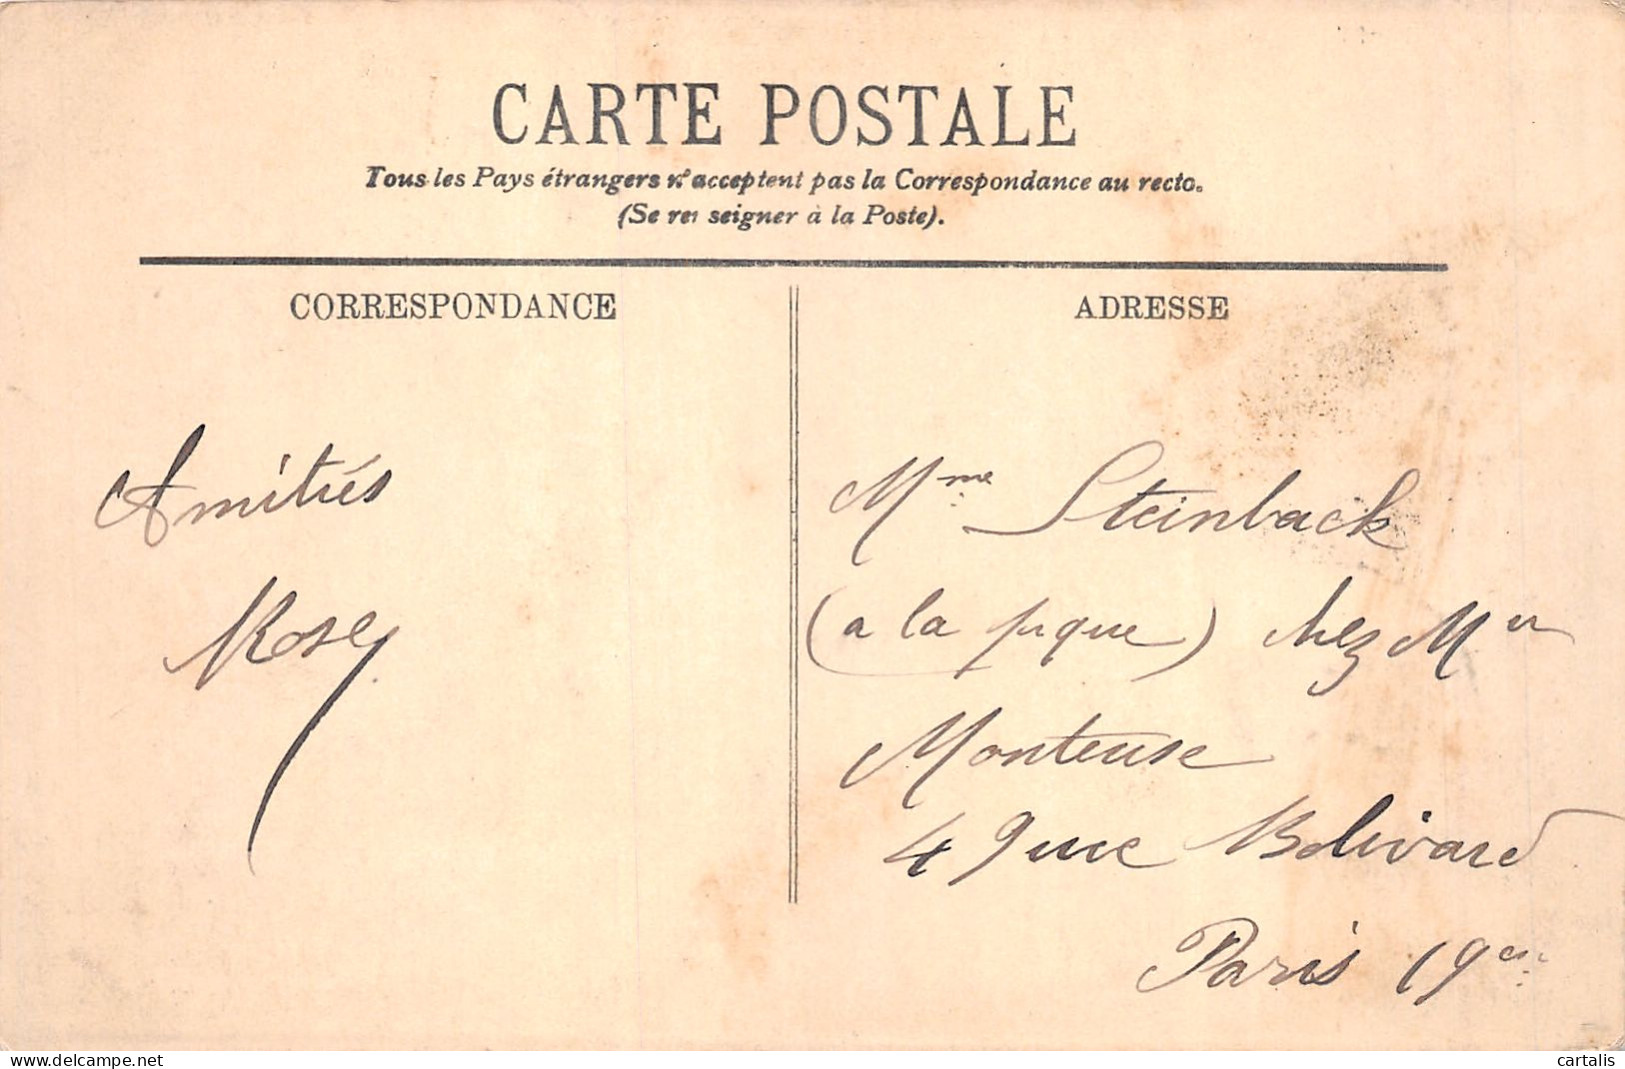 CARTE POSTALE
Tous les Pays étrangers n'acceptent pas la Correspondance au recto.
(Se rei seigner à la Poste).
CORRESPONDANCE
ADRESSE
Amitiés
Rose
Mme Steinback
(a la pique) chez M
Monteuse
49 rue Bolivard
Paris 19em
www.delcampe.net
cartalis